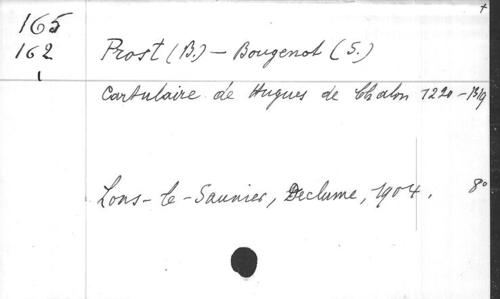 165
162
1
Prost (B.) - Bougenot (S.)
Cartulaire de Hugues de Chalon 1220-1319
Lons-le-Saunier, Declume, 1904. 8°